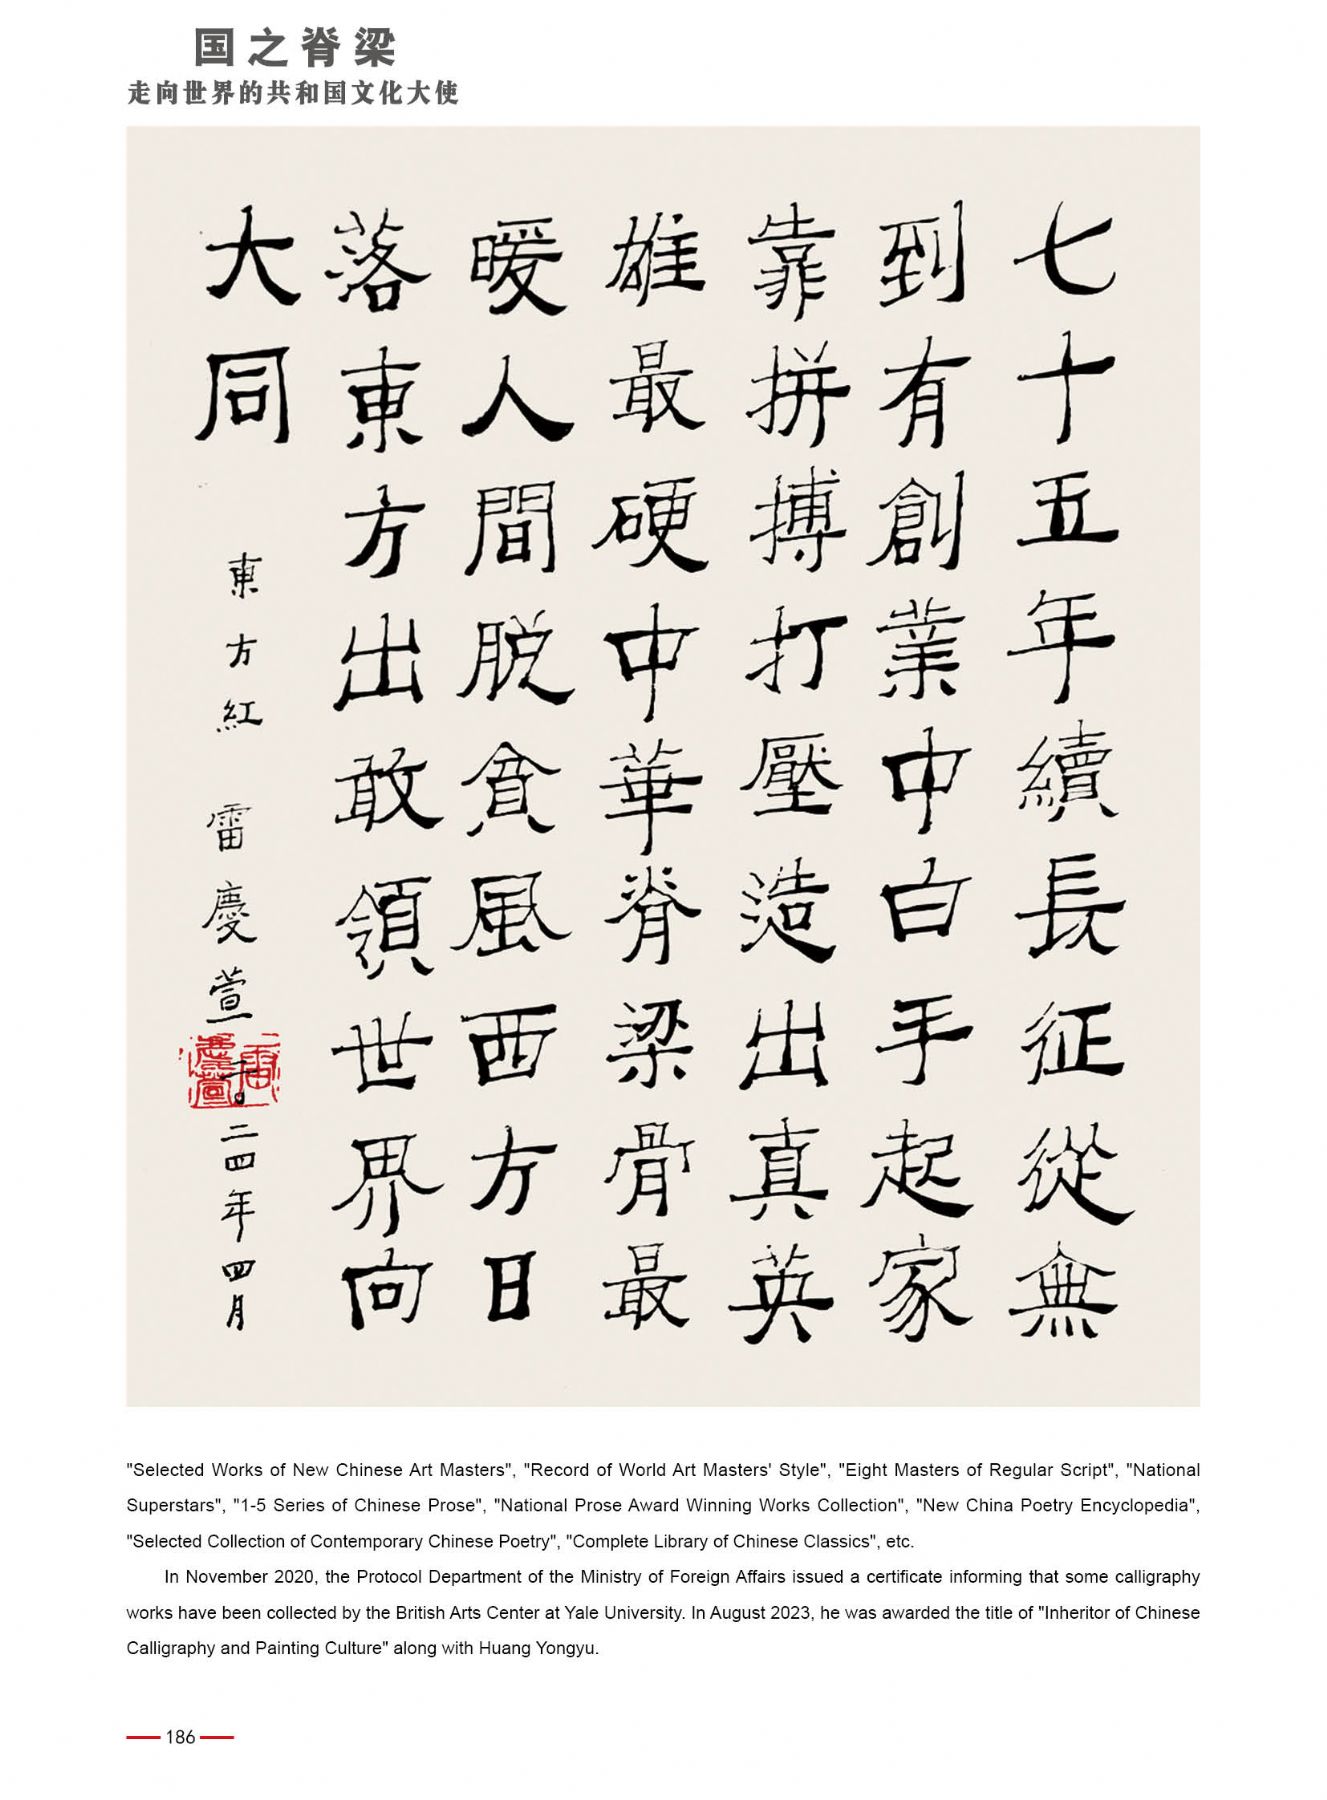 国之脊梁
走向世界的共和国文化大使
七十五年續長征從無
到有創業中白手起家
靠拼搏打壓造出真英
雄最硬中華脊梁骨最
暖人間脱貧風西方日
落東方出敢領世界向
大同
東方紅 雷慶萱
二〇二四年四月
"Selected Works of New Chinese Art Masters", "Record of World Art Masters' Style", "Eight Masters of Regular Script", "National
Superstars", "1-5 Series of Chinese Prose", "National Prose Award Winning Works Collection", "New China Poetry Encyclopedia",
"Selected Collection of Contemporary Chinese Poetry", "Complete Library of Chinese Classics", etc.
In November 2020, the Protocol Department of the Ministry of Foreign Affairs issued a certificate informing that some calligraphy
works have been collected by the British Arts Center at Yale University. In August 2023, he was awarded the title of "Inheritor of Chinese
Calligraphy and Painting Culture" along with Huang Yongyu.
186